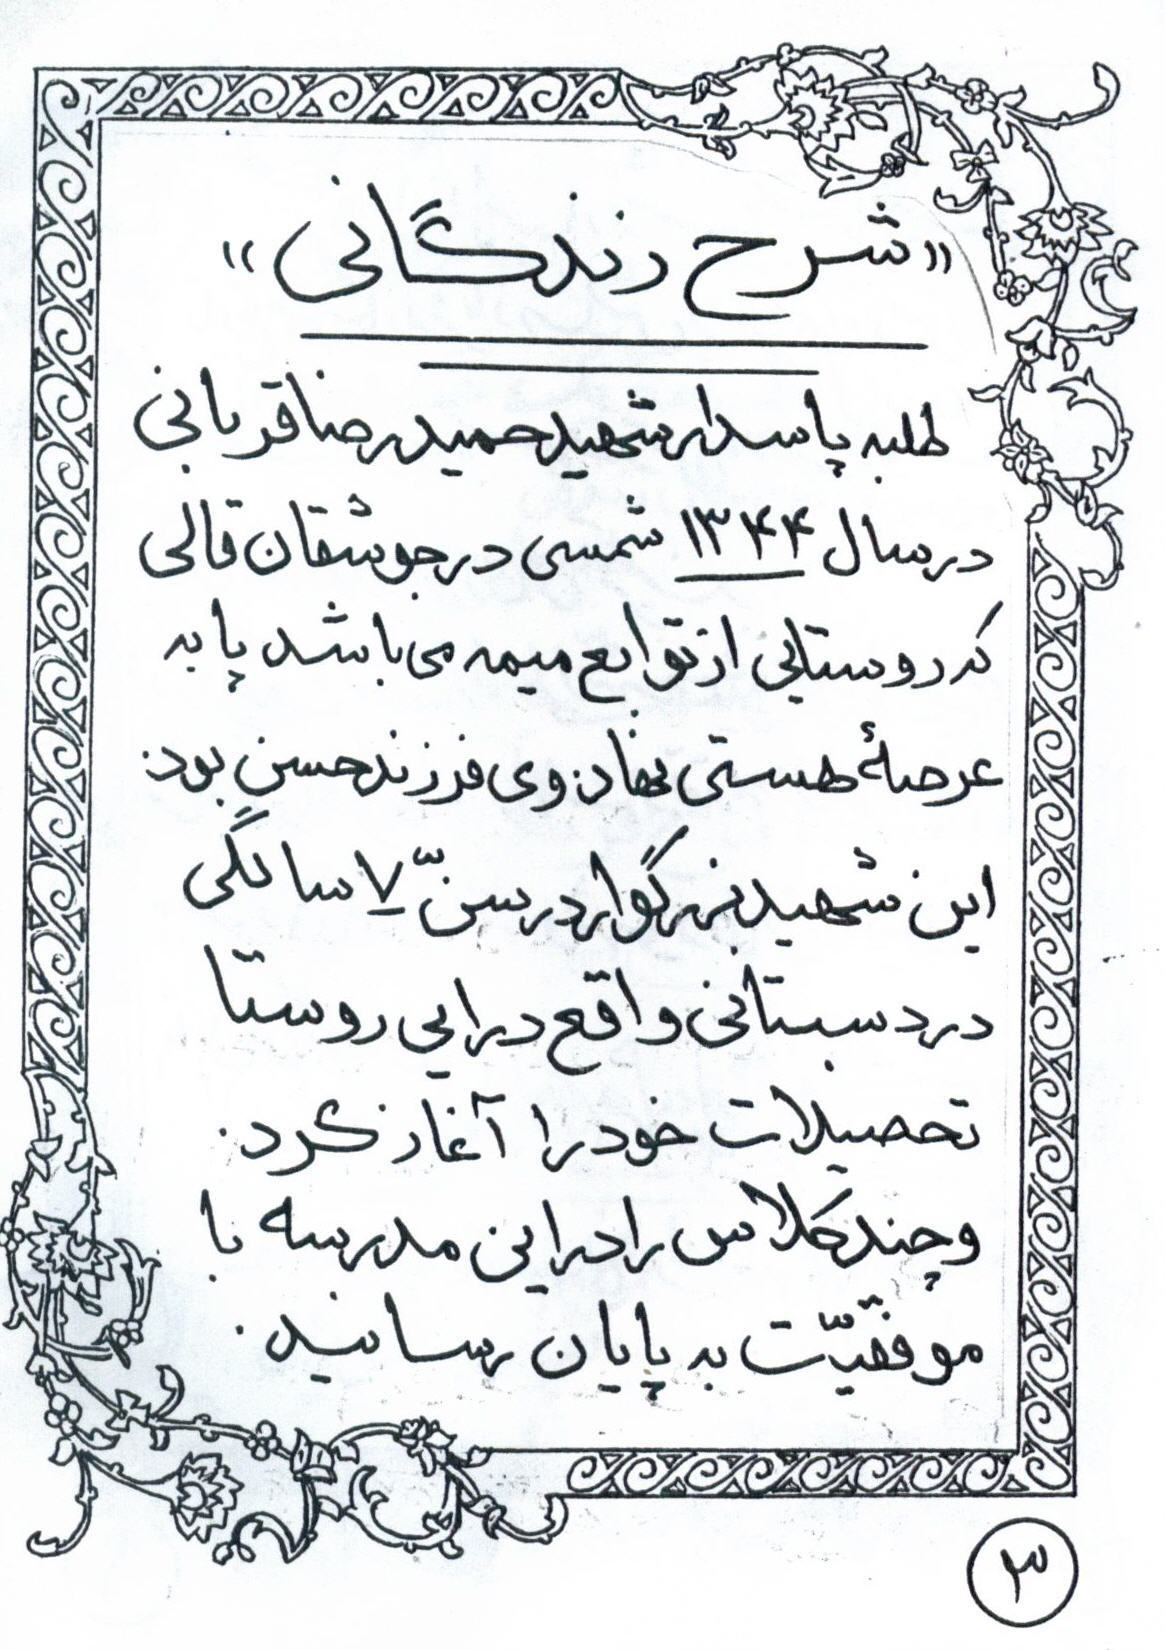 «شرح زندگانی»
طلبه پاسدار شهید حمید رضا قربانی
در سال ۱۳۴۴ شمسی در جوشقان قالی
که روستایی از توابع میمه می باشد پا به
عرصهٔ هستی نهاد. وی فرزند حسن بود.
این شهید بزرگوار در سنّ ۷ سالگی
در دبستانی واقع در این روستا
تحصیلات خود را آغاز کرد.
و چند کلاس را در این مدرسه با
موفقیّت به پایان رسانید.
۳